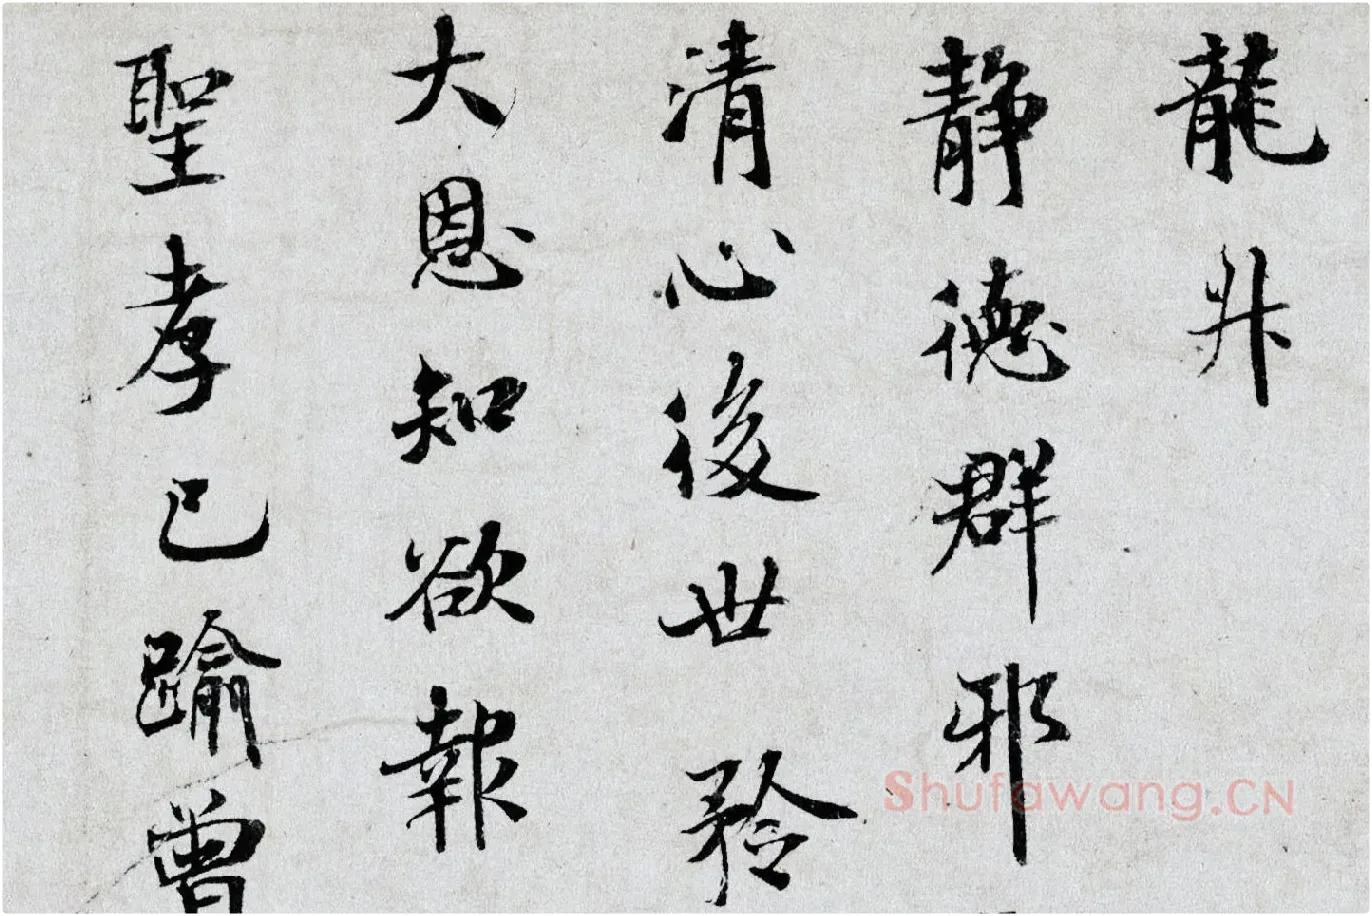 龍升
靜德群邪
清心後世矜
大恩知欲報
聖孝已踰曾
Shufawang.CN